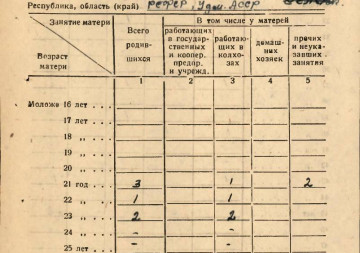 Республика, область (край) РСФСР, Удм. АССР
Занятие матери
Возраст матери
Всего родившихся
В том числе у матерей
работающих в государственных и коопер. предпр. и учрежд.
работающих в колхозах
домаш. хозяек
прочих и неуказавших занятия
1 2 3 4 5
Моложе 16 лет . . .
17 „ . . .
18 „ . . .
19 „ . . .
20 „ . . .
21 год . . . 3 1 2
22 „ . . . 1 1
23 „ . . . 2 2
24 „ . . . - -
25 лет . . . - -